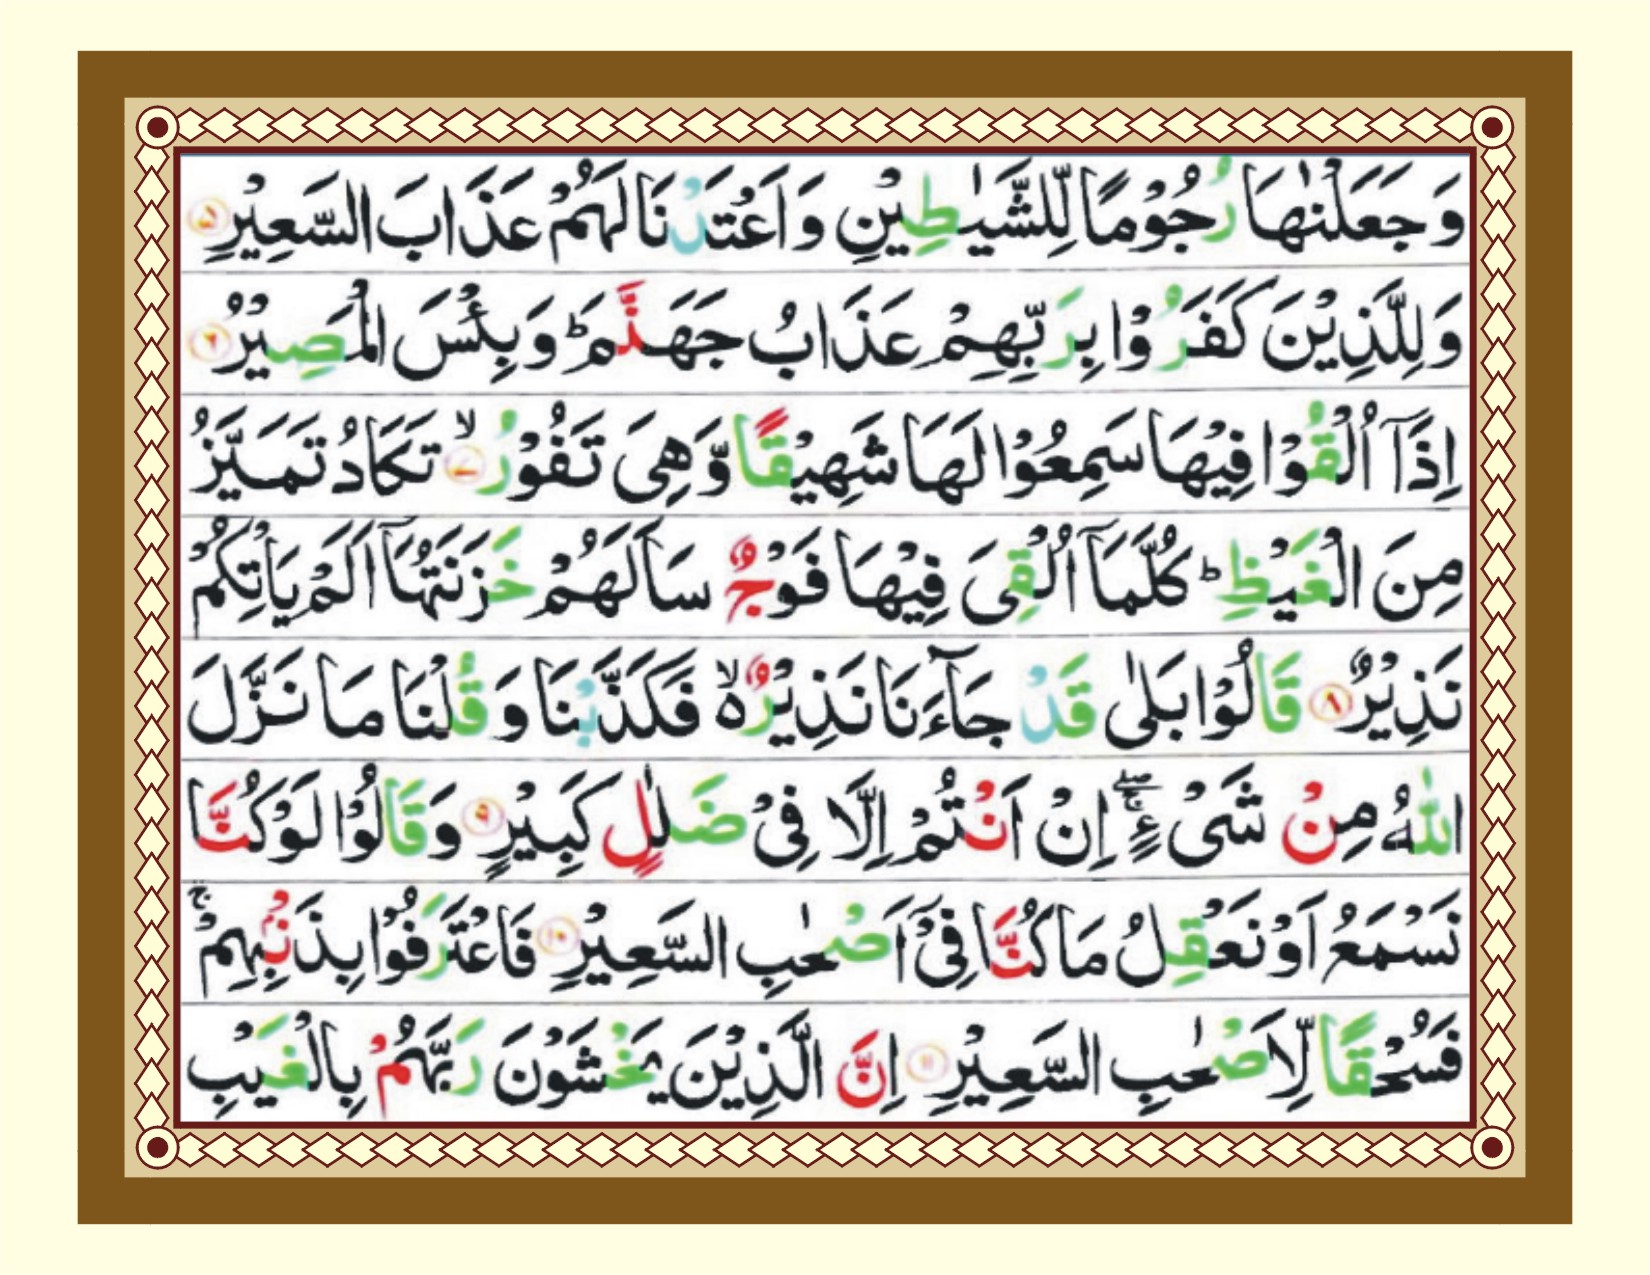 وَجَعَلْنٰهَا رُجُوْمًا لِّلشَّيٰطِيْنِ وَاَعْتَدْنَا لَهُمْ عَذَابَ السَّعِيْرِ ۵
وَلِلَّذِيْنَ كَفَرُوْا بِرَبِّهِمْ عَذَابُ جَهَنَّمَ ؕ وَبِئْسَ الْمَصِيْرُ ۶
اِذَاۤ اُلْقُوْا فِيْهَا سَمِعُوْا لَهَا شَهِيْقًا وَّهِىَ تَفُوْرُ ۙ ۷ تَكَادُ تَمَيَّزُ
مِنَ الْغَيْظِ ؕ كُلَّمَاۤ اُلْقِىَ فِيْهَا فَوْجٌ سَاَلَهُمْ خَزَنَتُهَاۤ اَلَمْ يَاْتِكُمْ
نَذِيْرٌ ۸ قَالُوْا بَلٰى قَدْ جَآءَنَا نَذِيْرٌ ۙ۬ فَكَذَّبْنَا وَقُلْنَا مَا نَزَّلَ
اللّٰهُ مِنْ شَىْءٍ ۖۚ اِنْ اَنْتُمْ اِلَّا فِىْ ضَلٰلٍ كَبِيْرٍ ۹ وَقَالُوْا لَوْ كُنَّا
نَسْمَعُ اَوْ نَعْقِلُ مَا كُنَّا فِىْۤ اَصْحٰبِ السَّعِيْرِ ۱۰ فَاعْتَرَفُوْا بِذَنْۢبِهِمْ ۚ
فَسُحْقًا لِّاَصْحٰبِ السَّعِيْرِ ۱۱ اِنَّ الَّذِيْنَ يَخْشَوْنَ رَبَّهُمْ بِالْغَيْبِ